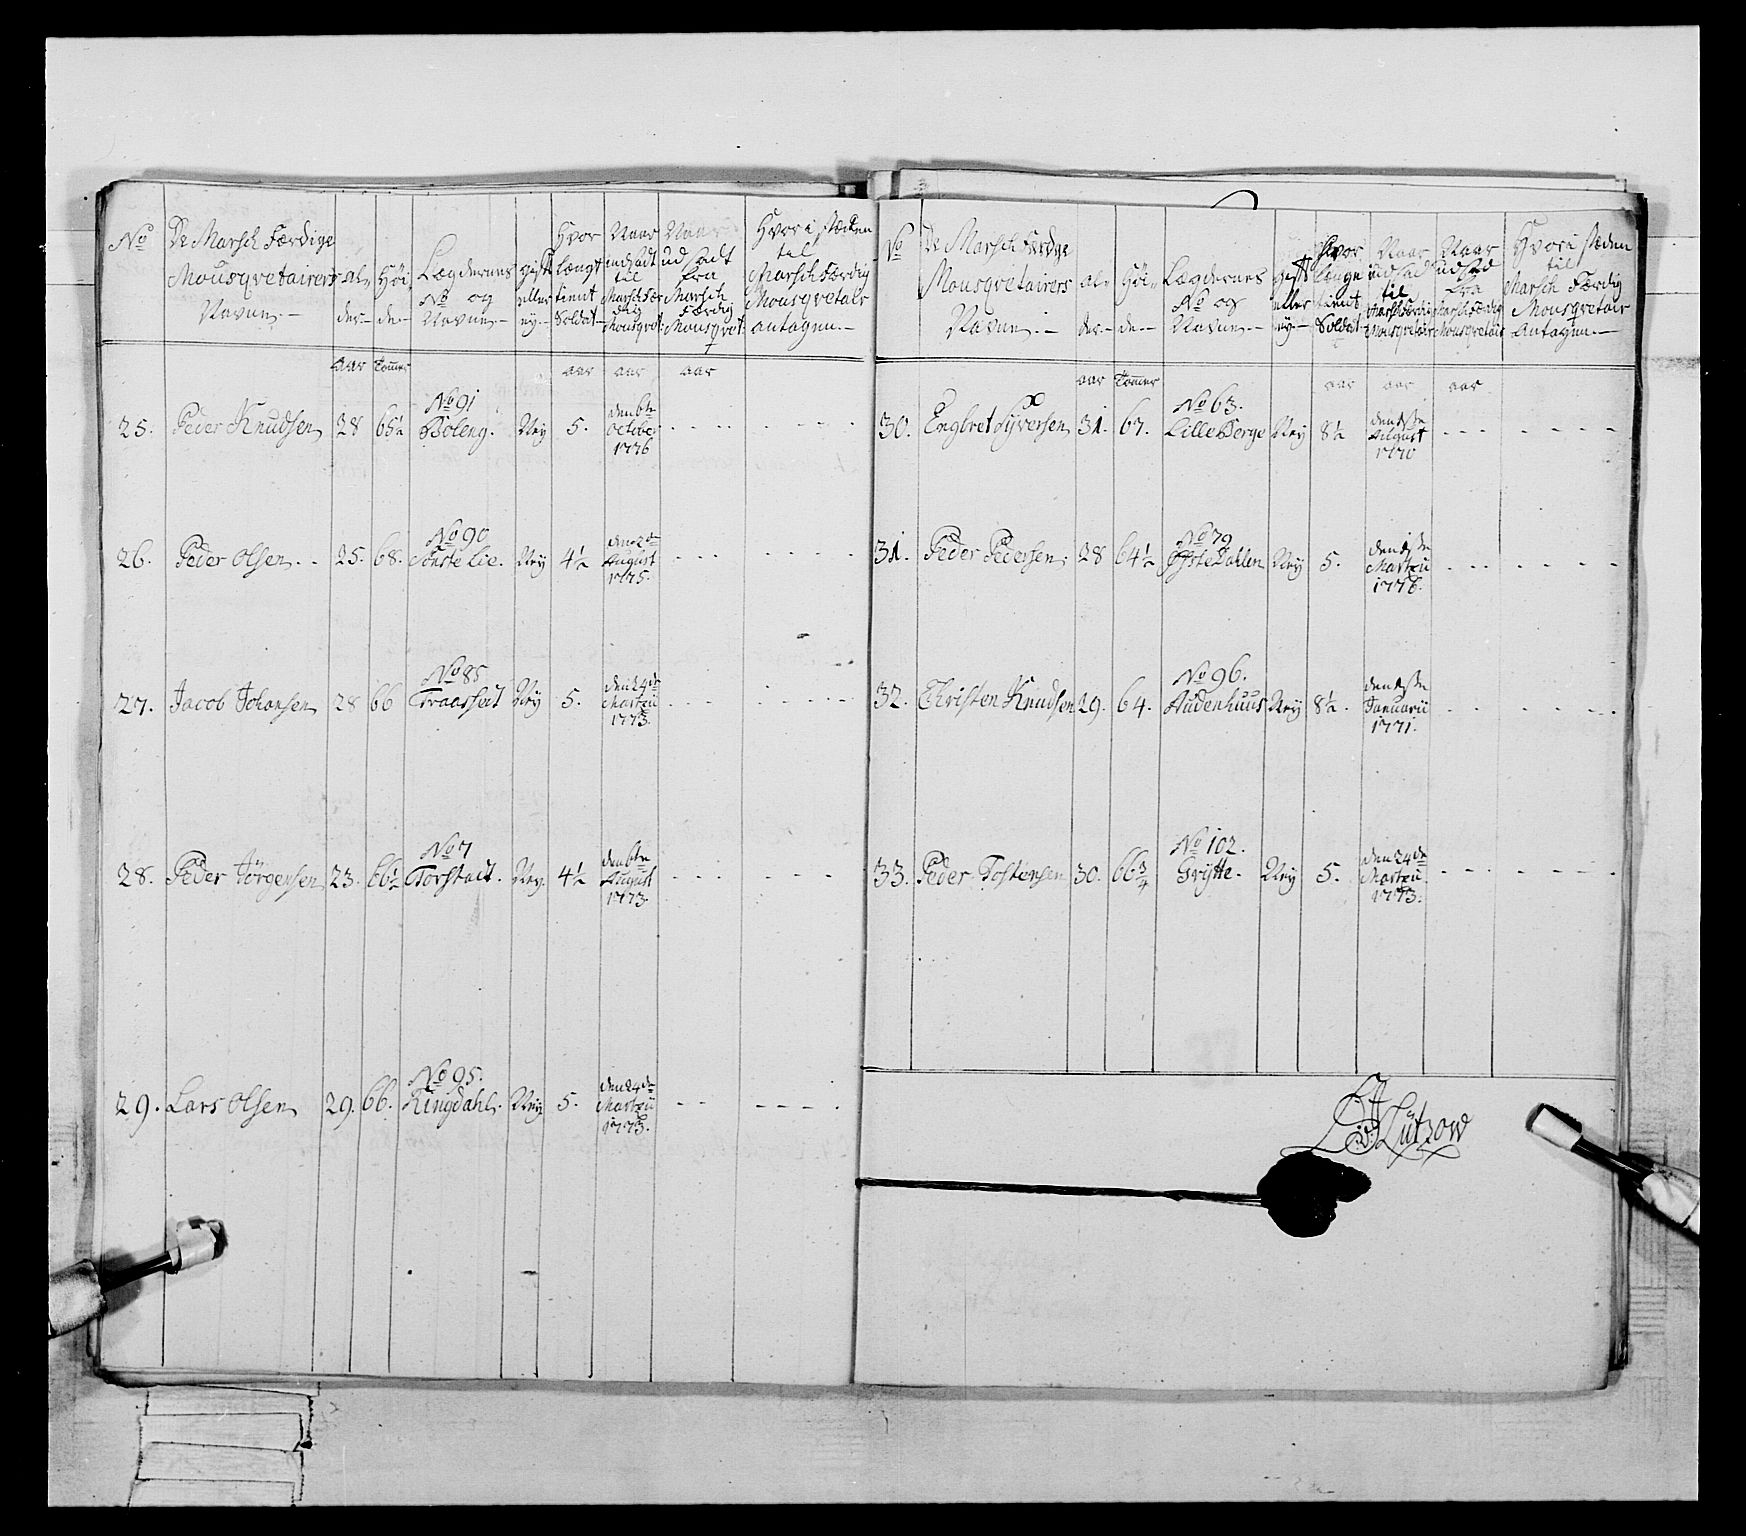 No
De Marsch Færdige
Mousqvetairers
Navne.
al-
der
Höi-
de
Lægdernes
No og
Navne
gift
eller
ey
Hvor
længt
tient
Soldat
Naar
indsadt
til
Marsch Fær
dig
Mousqvet
Naar
udsadt
fra
Marsch
Færdig
Mousqvet
Hvor i stæden
til
Marsch Færdig
Mousqvetair
antagen
aar Tomer aar aar aar
25. Peder Knudsen 28 65½ No 91 Boleng. Ney 5. den 6te October 1776
26. Peder Olsen 25. 68. No 90 Tonste Lie. Ney 4½ den 2de August 1775.
27. Jacob Johansen 28 66 No 85 Traasseit Ney 5. den 24de Martzii 1773.
28. Peder Jörgensen 23. 66½ No 7 Torstait. Ney. 4½ den 6te August 1773.
29. Lars Olsen 29. 66. No 95. Ringdahl. Ney. 5. den 24de Martzii 1773.
No
De Marsch Færdge
Mousqvetairers
Navne.
al-
der
Höi-
de
Lægdernes
No og
Navne
gift
eller
ey
Hvor
længe
tient
Soldat
Naar
indsad
til
Marsch Færdig
Mousqvetair
Naar
udsad
fra
Marsch Færdig
Mousqvetair
Hvor i stæden
til
Marsch Færdig
Mousqvetair
Antagen
aar Tomer aar aar aar
30. Englret Syversen 31. 67. No 63. Lille Berge Ney 8½ den 1ste August 1770
31. Peder Pedersen 28 64½ No 79 Öfste Dahlen Ney 5. den 1ste Martzii 1776.
32. Christen Knudsen 29. 64. No 96. Audenhuus Ney 8½. den 1ste Januarii 1771.
33. Peder Tostensen 30. 66¾ No 102. Grÿtte. Ney 5. den 24de Martzii 1773.
Lützow